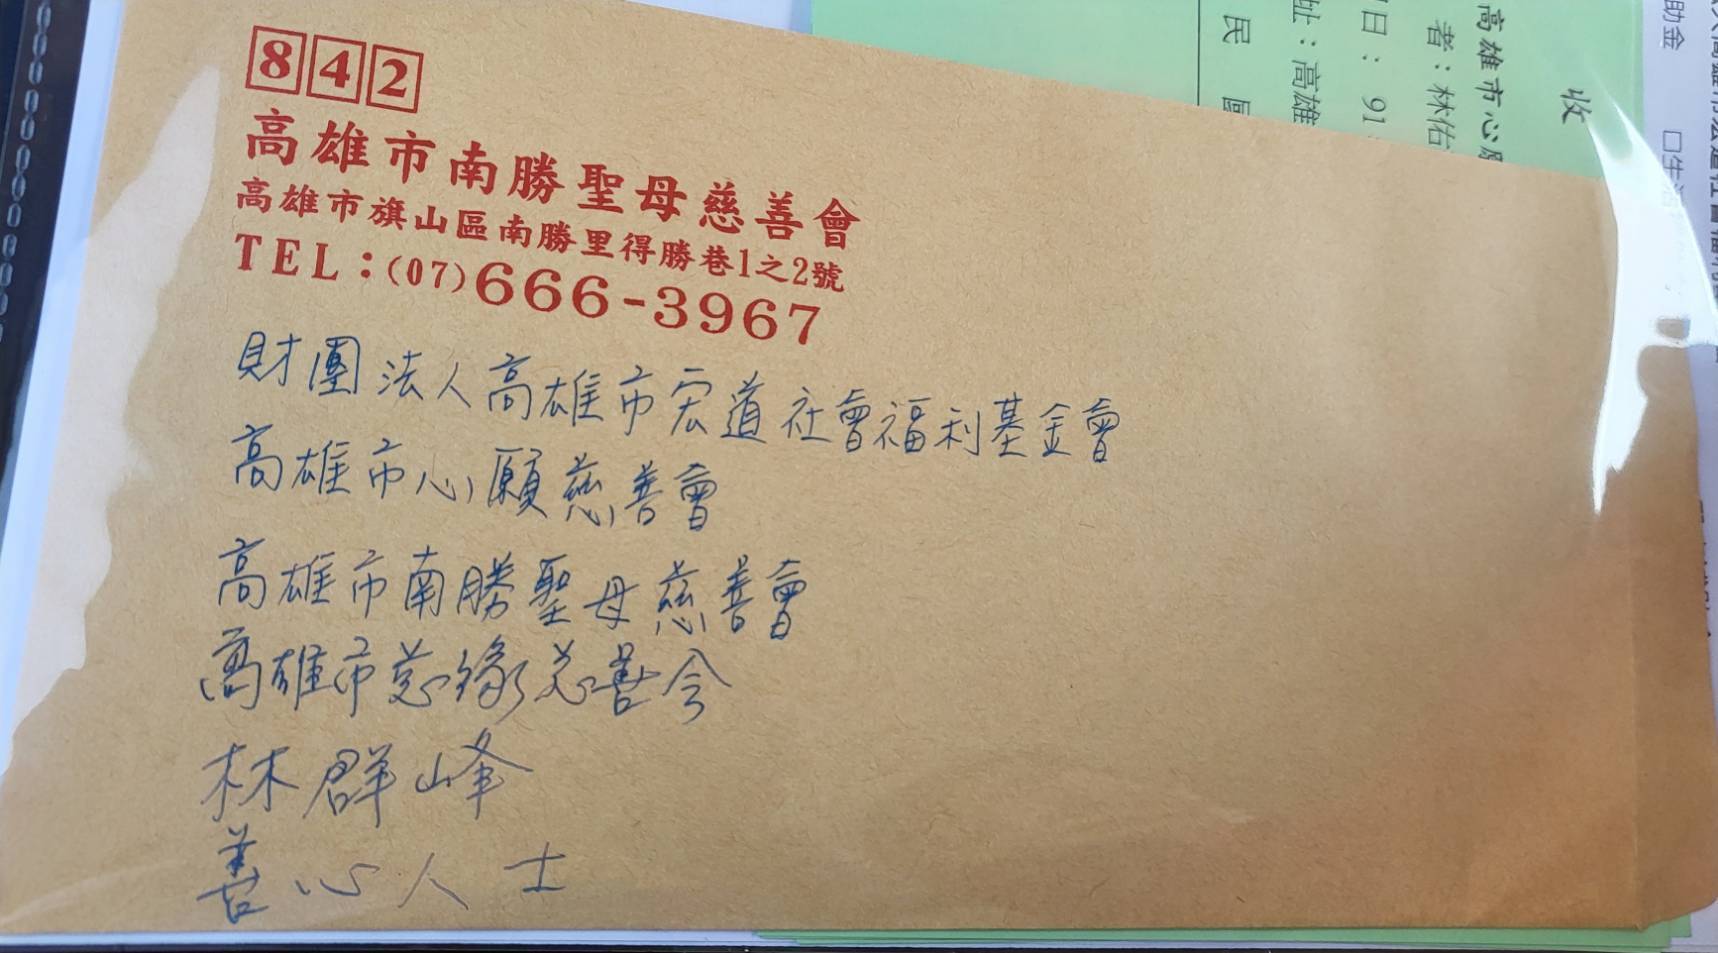 842
高雄市南勝聖母慈善會
高雄市旗山區南勝里得勝巷1之2號
TEL:(07)666-3967
財團法人高雄市宏道社會福利基金會
高雄市心願慈善會
高雄市南勝聖母慈善會
高雄市慈緣慈善会
林群峰
善心人士
收
高雄市心願
者:林佑
日: 91
址:高雄
民 國
助金
□生活